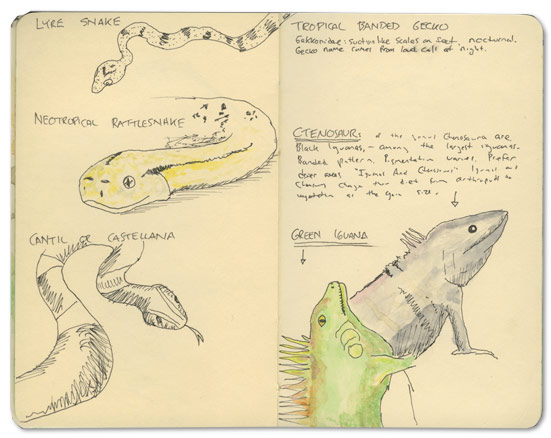 LYRE SNAKE
NEOTROPICAL RATTLESNAKE
CANTIL OR CASTELLANA
TROPICAL BANDED GECKO
Gekkonidae: suction like scales on feet, nocturnal.
Gecko name comes from loud call at night.
CTENOSAURS of the genus Ctenosaura are
Black Iguanas, - among the largest iguanas.
Banded pattern. Pigmentation varies. Prefer
areas "Iguanas And Ctenosaurs" Iguanas and
change their diet from arthropods to
vegetation as they gain size.
GREEN IGUANA